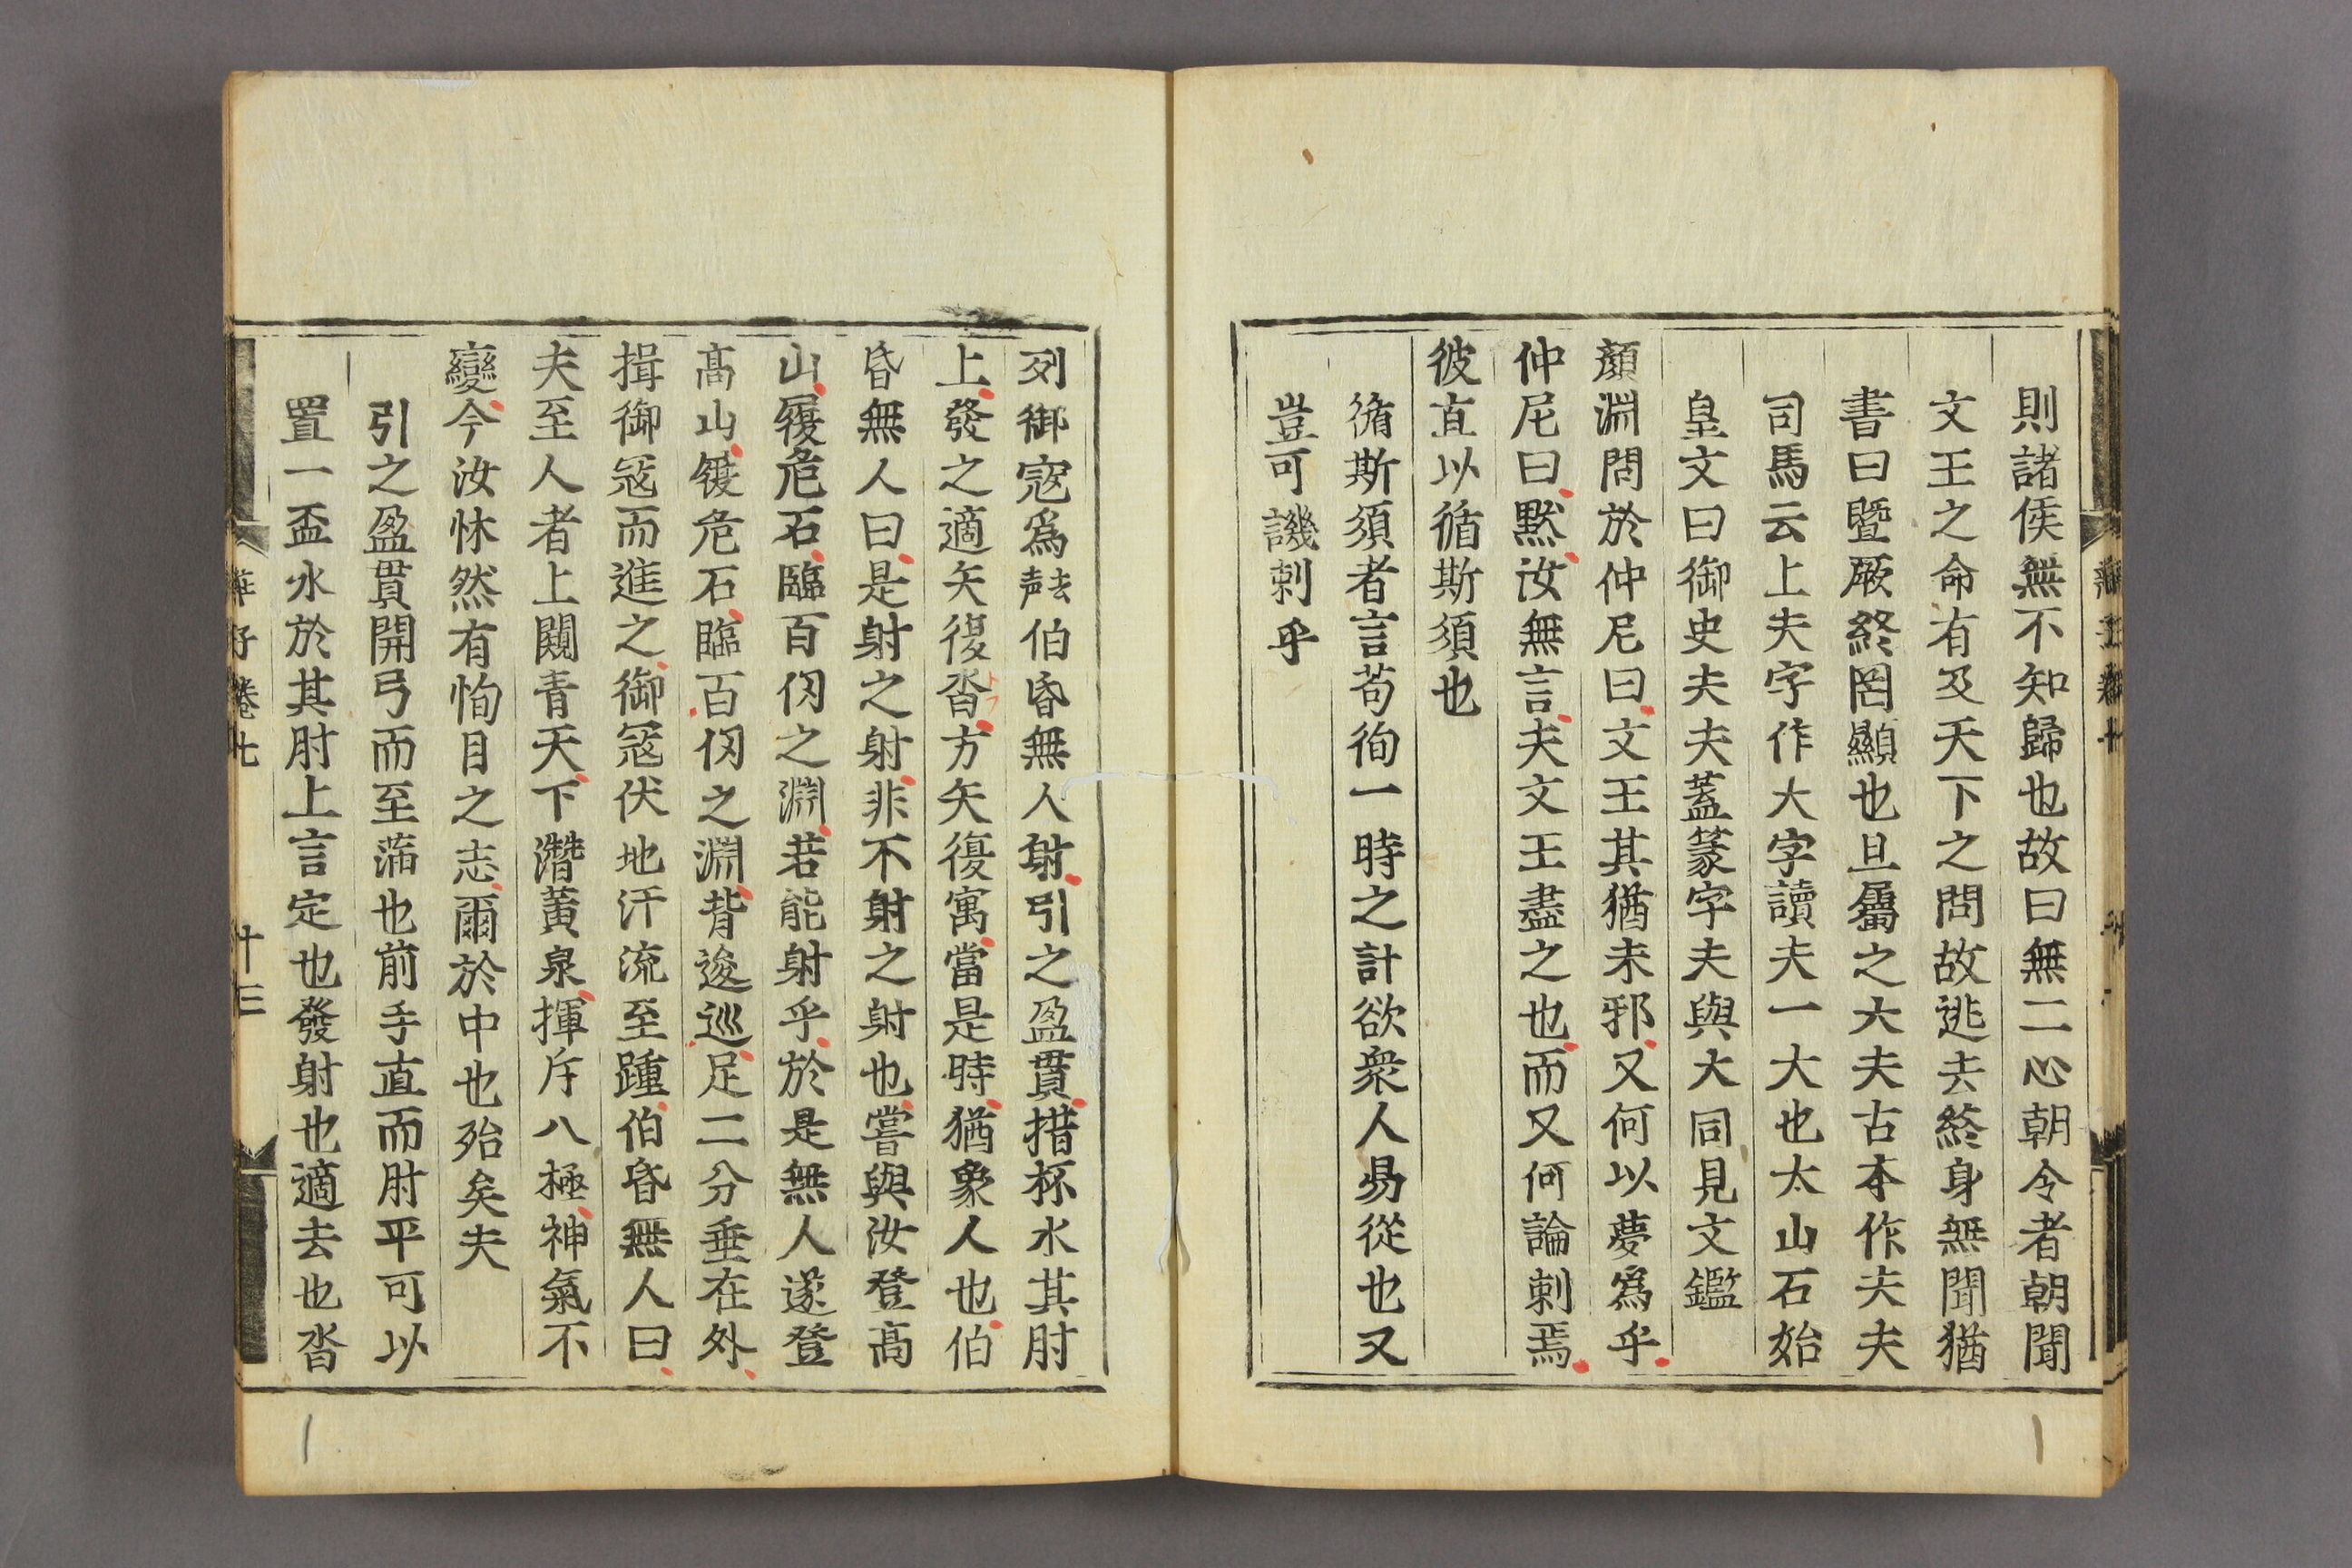 則諸侯無不知歸也故曰無二心朝令者朝聞
文王之命有及天下之問故逃去終身無聞猶
書曰曁厥終罔顯也旦屬之大夫古本作夫夫
司馬云上夫字作大字讀夫一大也太山石始
皇文曰御史夫夫蓋篆字夫與大同見文鑑
顏淵問於仲尼曰文王其猶未邪又何以夢爲乎
仲尼曰默汝無言夫文王盡之也而又何論刺焉
彼直以循斯須也
循斯須者言苟徇一時之計欲衆人易從也又
豈可譏刺乎
列御寇爲伯昏無人射引之盈貫措杯水其肘
上發之適矢復沓方矢復寓當是時猶象人也伯
昏無人曰是射之射非不射之射也嘗與汝登高
山履危石臨百仞之淵若能射乎於是無人遂登
高山履危石臨百仞之淵背逡巡足二分垂在外
揖御寇而進之御寇伏地汗流至踵伯昏無人曰
夫至人者上闚青天下潛黃泉揮斥八極神氣不
變今汝怵然有恂目之志爾於中也殆矣夫
引之盈貫開弓而至滿也前手直而肘平可以
置一盃水於其肘上言定也發射也適去也沓
莊子卷七 十三